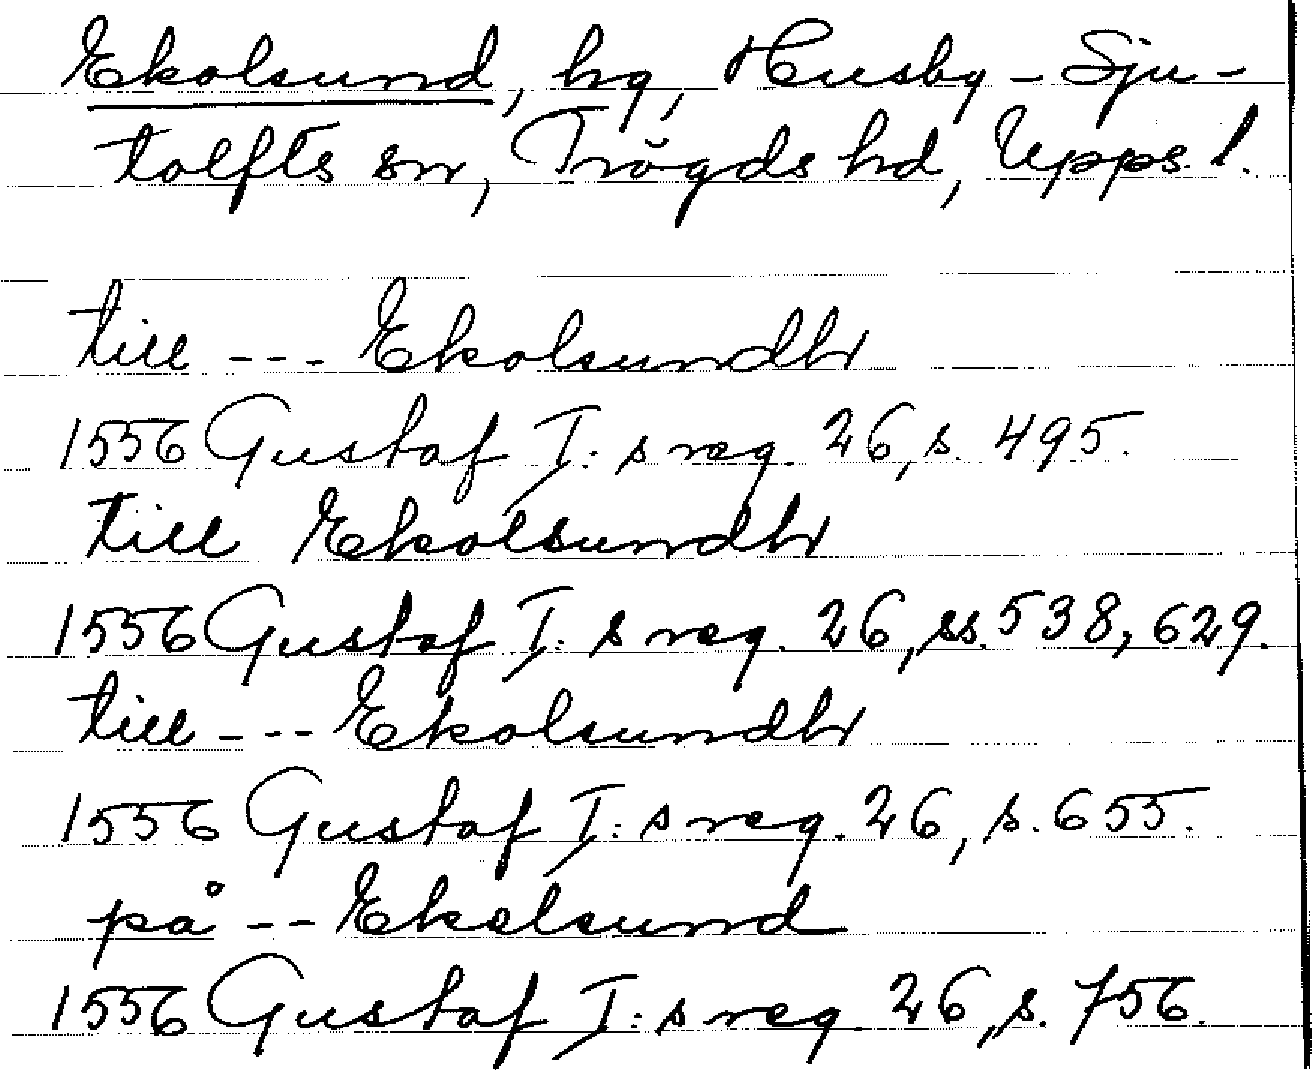 Ekolsund, hg, Husby-Sju-
tolfts sn, Trögds hd, Upps. l.
till --- Ekolsundh
1556 Gustaf I:s reg. 26, s. 495.
till Ekolsundh
1556 Gustaf I:s reg. 26, ss. 538, 629.
till --- Ekolsundh
1556 Gustaf I:s reg. 26, s. 655.
på -- Ekolsund
1556 Gustaf I:s reg. 26, s. 756.